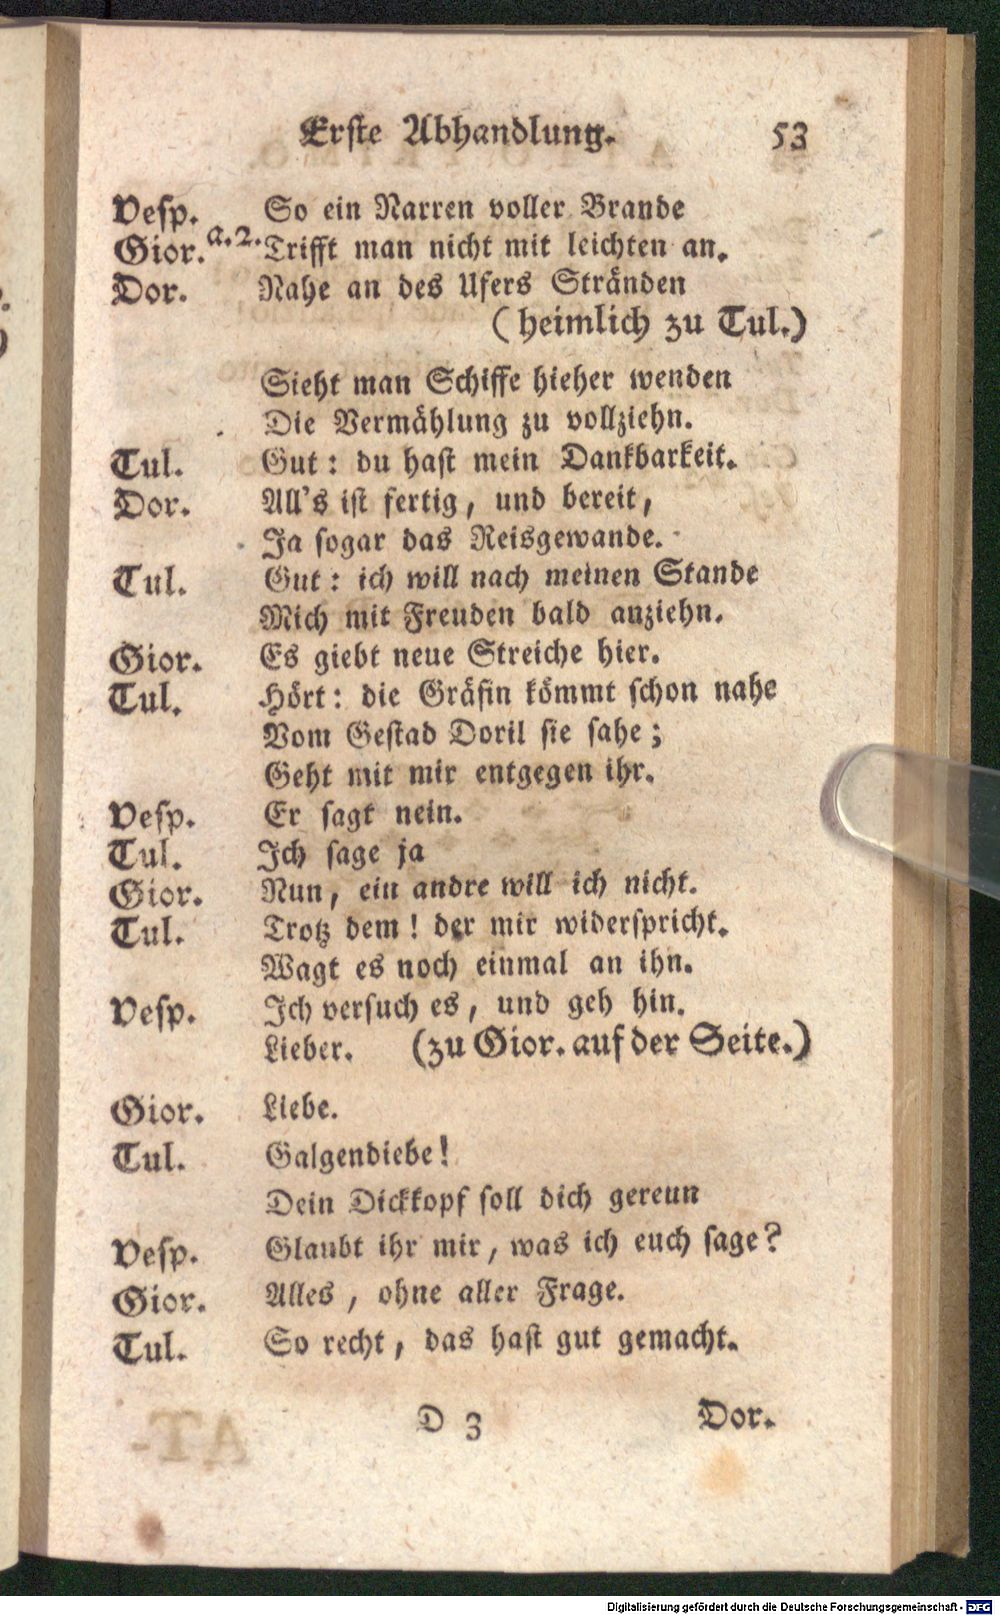 Erste Abhandlung. 53
Vesp. So ein Narren voller Brande
Gior. a. 2. Trifft man nicht mit leichten an.
Dor. Nahe an des Ufers Stränden
(heimlich zu Tul.)
Sieht man Schiffe hieher wenden
Die Vermählung zu vollziehn.
Tul. Gut: du hast mein Dankbarkeit.
Dor. All's ist fertig, und bereit,
Ja sogar das Reisgewande.
Tul. Gut: ich will nach meinen Stande
Mich mit Freuden bald anziehn.
Gior. Es giebt neue Streiche hier.
Tul. Hört: die Gräfin kömmt schon nahe
Vom Gestad Doril sie sahe;
Geht mit mir entgegen ihr.
Vesp. Er sagt nein.
Tul. Ich sage ja
Gior. Nun, ein andre will ich nicht.
Tul. Trotz dem! der mir widerspricht.
Wagt es noch einmal an ihn.
Vesp. Ich versuch es, und geh hin.
Lieber. (zu Gior. auf der Seite.)
Gior. Liebe.
Tul. Galgendiebe!
Dein Dickkopf soll dich gereun
Vesp. Glaubt ihr mir, was ich euch sage?
Gior. Alles, ohne aller Frage.
Tul. So recht, das hast gut gemacht.
D 3 Dor.
Digitalisierung gefördert durch die Deutsche Forschungsgemeinschaft - DFG